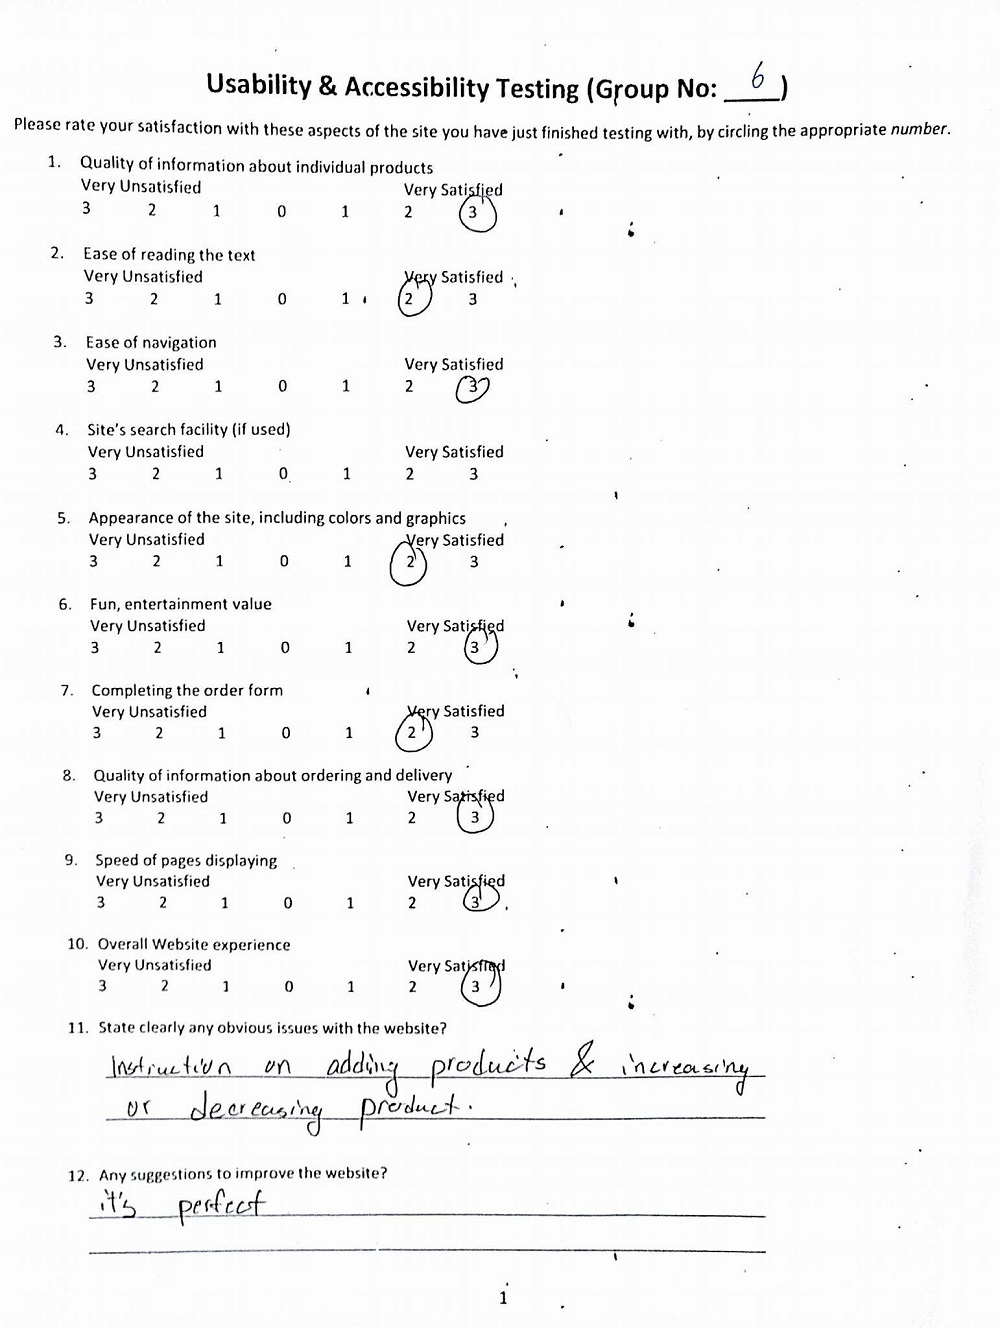 Usability & Accessibility Testing (Group No: 6)
Please rate your satisfaction with these aspects of the site you have just finished testing with, by circling the appropriate number.
1. Quality of information about individual products
Very Unsatisfied Very Satisfied
3 2 1 0 1 2 3
2. Ease of reading the text
Very Unsatisfied Very Satisfied
3 2 1 0 1 2 3
3. Ease of navigation
Very Unsatisfied Very Satisfied
3 2 1 0 1 2 3
4. Site's search facility (if used)
Very Unsatisfied Very Satisfied
3 2 1 0 1 2 3
5. Appearance of the site, including colors and graphics
Very Unsatisfied Very Satisfied
3 2 1 0 1 2 3
6. Fun, entertainment value
Very Unsatisfied Very Satisfied
3 2 1 0 1 2 3
7. Completing the order form
Very Unsatisfied Very Satisfied
3 2 1 0 1 2 3
8. Quality of information about ordering and delivery
Very Unsatisfied Very Satisfied
3 2 1 0 1 2 3
9. Speed of pages displaying
Very Unsatisfied Very Satisfied
3 2 1 0 1 2 3
10. Overall Website experience
Very Unsatisfied Very Satisfied
3 2 1 0 1 2 3
11. State clearly any obvious issues with the website?
Instruction on adding products & increasing
or decreasing product.
12. Any suggestions to improve the website?
it's perfect
1